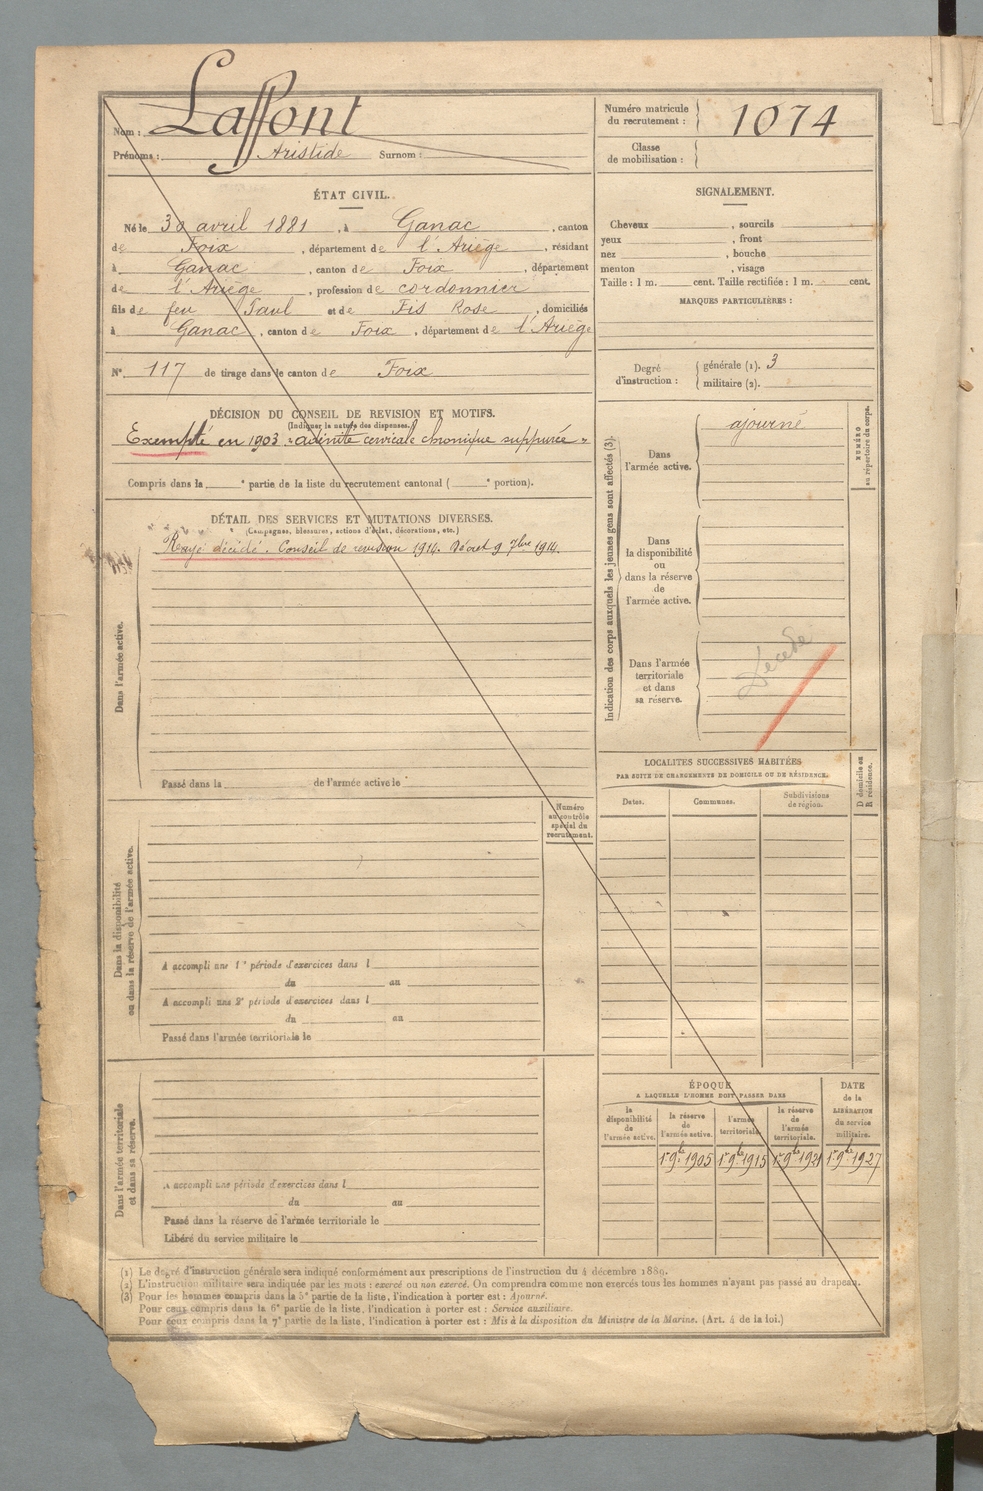 Nom : Laffont
Prénoms : Aristide Surnom :
Numéro matricule du recrutement : 1074
Classe de mobilisation :
ÉTAT CIVIL.
Né le 30 avril 1881, à Ganac, canton
de Foix, département de l'Ariège, résidant
à Ganac, canton de Foix, département
de l'Ariège, profession de cordonnier
fils de feu Paul et de Fis Rose, domiciliés
à Ganac, canton de Foix, département de l'Ariège
N° 117 de tirage dans le canton de Foix
DÉCISION DU CONSEIL DE REVISION ET MOTIFS.
(Indiquer la nature des dispenses.)
Exempté en 1903. "adénite cervicale chronique suppurée"
Compris dans la e partie de la liste du recrutement cantonal ( e portion).
DÉTAIL DES SERVICES ET MUTATIONS DIVERSES.
(Campagnes, blessures, actions d'éclat, décorations, etc.)
Rayé décédé. Conseil de revision 1914. Décret 9 7bre 1914.
Dans l'armée active.
Passé dans la de l'armée active le
Numéro
au contrôle
spécial du
recrutement.
Dans la disponibilité
ou dans la réserve de l'armée active.
A accompli une 1re période d'exercices dans l
du au
A accompli une 2e période d'exercices dans l
du au
Passé dans l'armée territoriale le
Dans l'armée territoriale
et dans sa réserve.
A accompli une période d'exercices dans l
du au
Passé dans la réserve de l'armée territoriale le
Libéré du service militaire le
SIGNALEMENT.
Cheveux , sourcils
yeux , front
nez , bouche
menton , visage
Taille : 1 m. cent. Taille rectifiée : 1 m. cent.
MARQUES PARTICULIÈRES :
Degré d'instruction : générale (1). 3
militaire (2).
Indication des corps auxquels les jeunes gens sont affectés (3).
NUMÉRO
au répertoire du corps.
Dans
l'armée active.
ajourné
Dans
la disponibilité
ou
dans la réserve
de
l'armée active.
Dans l'armée
territoriale
et dans
sa réserve.
Décédé
LOCALITÉS SUCCESSIVES HABITÉES
PAR SUITE DE CHANGEMENTS DE DOMICILE OU DE RÉSIDENCE.
D domicile ou
R résidence.
Dates. Communes. Subdivisions de région.
ÉPOQUE
A LAQUELLE L'HOMME DOIT PASSER DANS
DATE
de la
LIBÉRATION
du service
militaire.
la disponibilité de l'armée active.
la réserve de l'armée active.
l'armée territoriale.
la réserve de l'armée territoriale.
1er 9bre 1905 1er 9bre 1915 1er 9bre 1921 1er 9bre 1927
(1) Le degré d'instruction générale sera indiqué conformément aux prescriptions de l'instruction du 4 décembre 1889.
(2) L'instruction militaire sera indiquée par les mots : exercé ou non exercé. On comprendra comme non exercés tous les hommes n'ayant pas passé au drapeau.
(3) Pour les hommes compris dans la 5e partie de la liste, l'indication à porter est : Ajourné.
Pour ceux compris dans la 6e partie de la liste, l'indication à porter est : Service auxiliaire.
Pour ceux compris dans la 7e partie de la liste, l'indication à porter est : Mis à la disposition du Ministre de la Marine. (Art. 4 de la loi.)